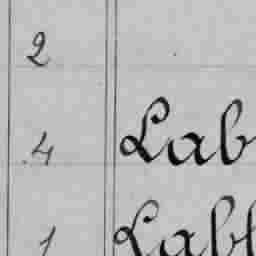 2
4 Lab
1 Labf